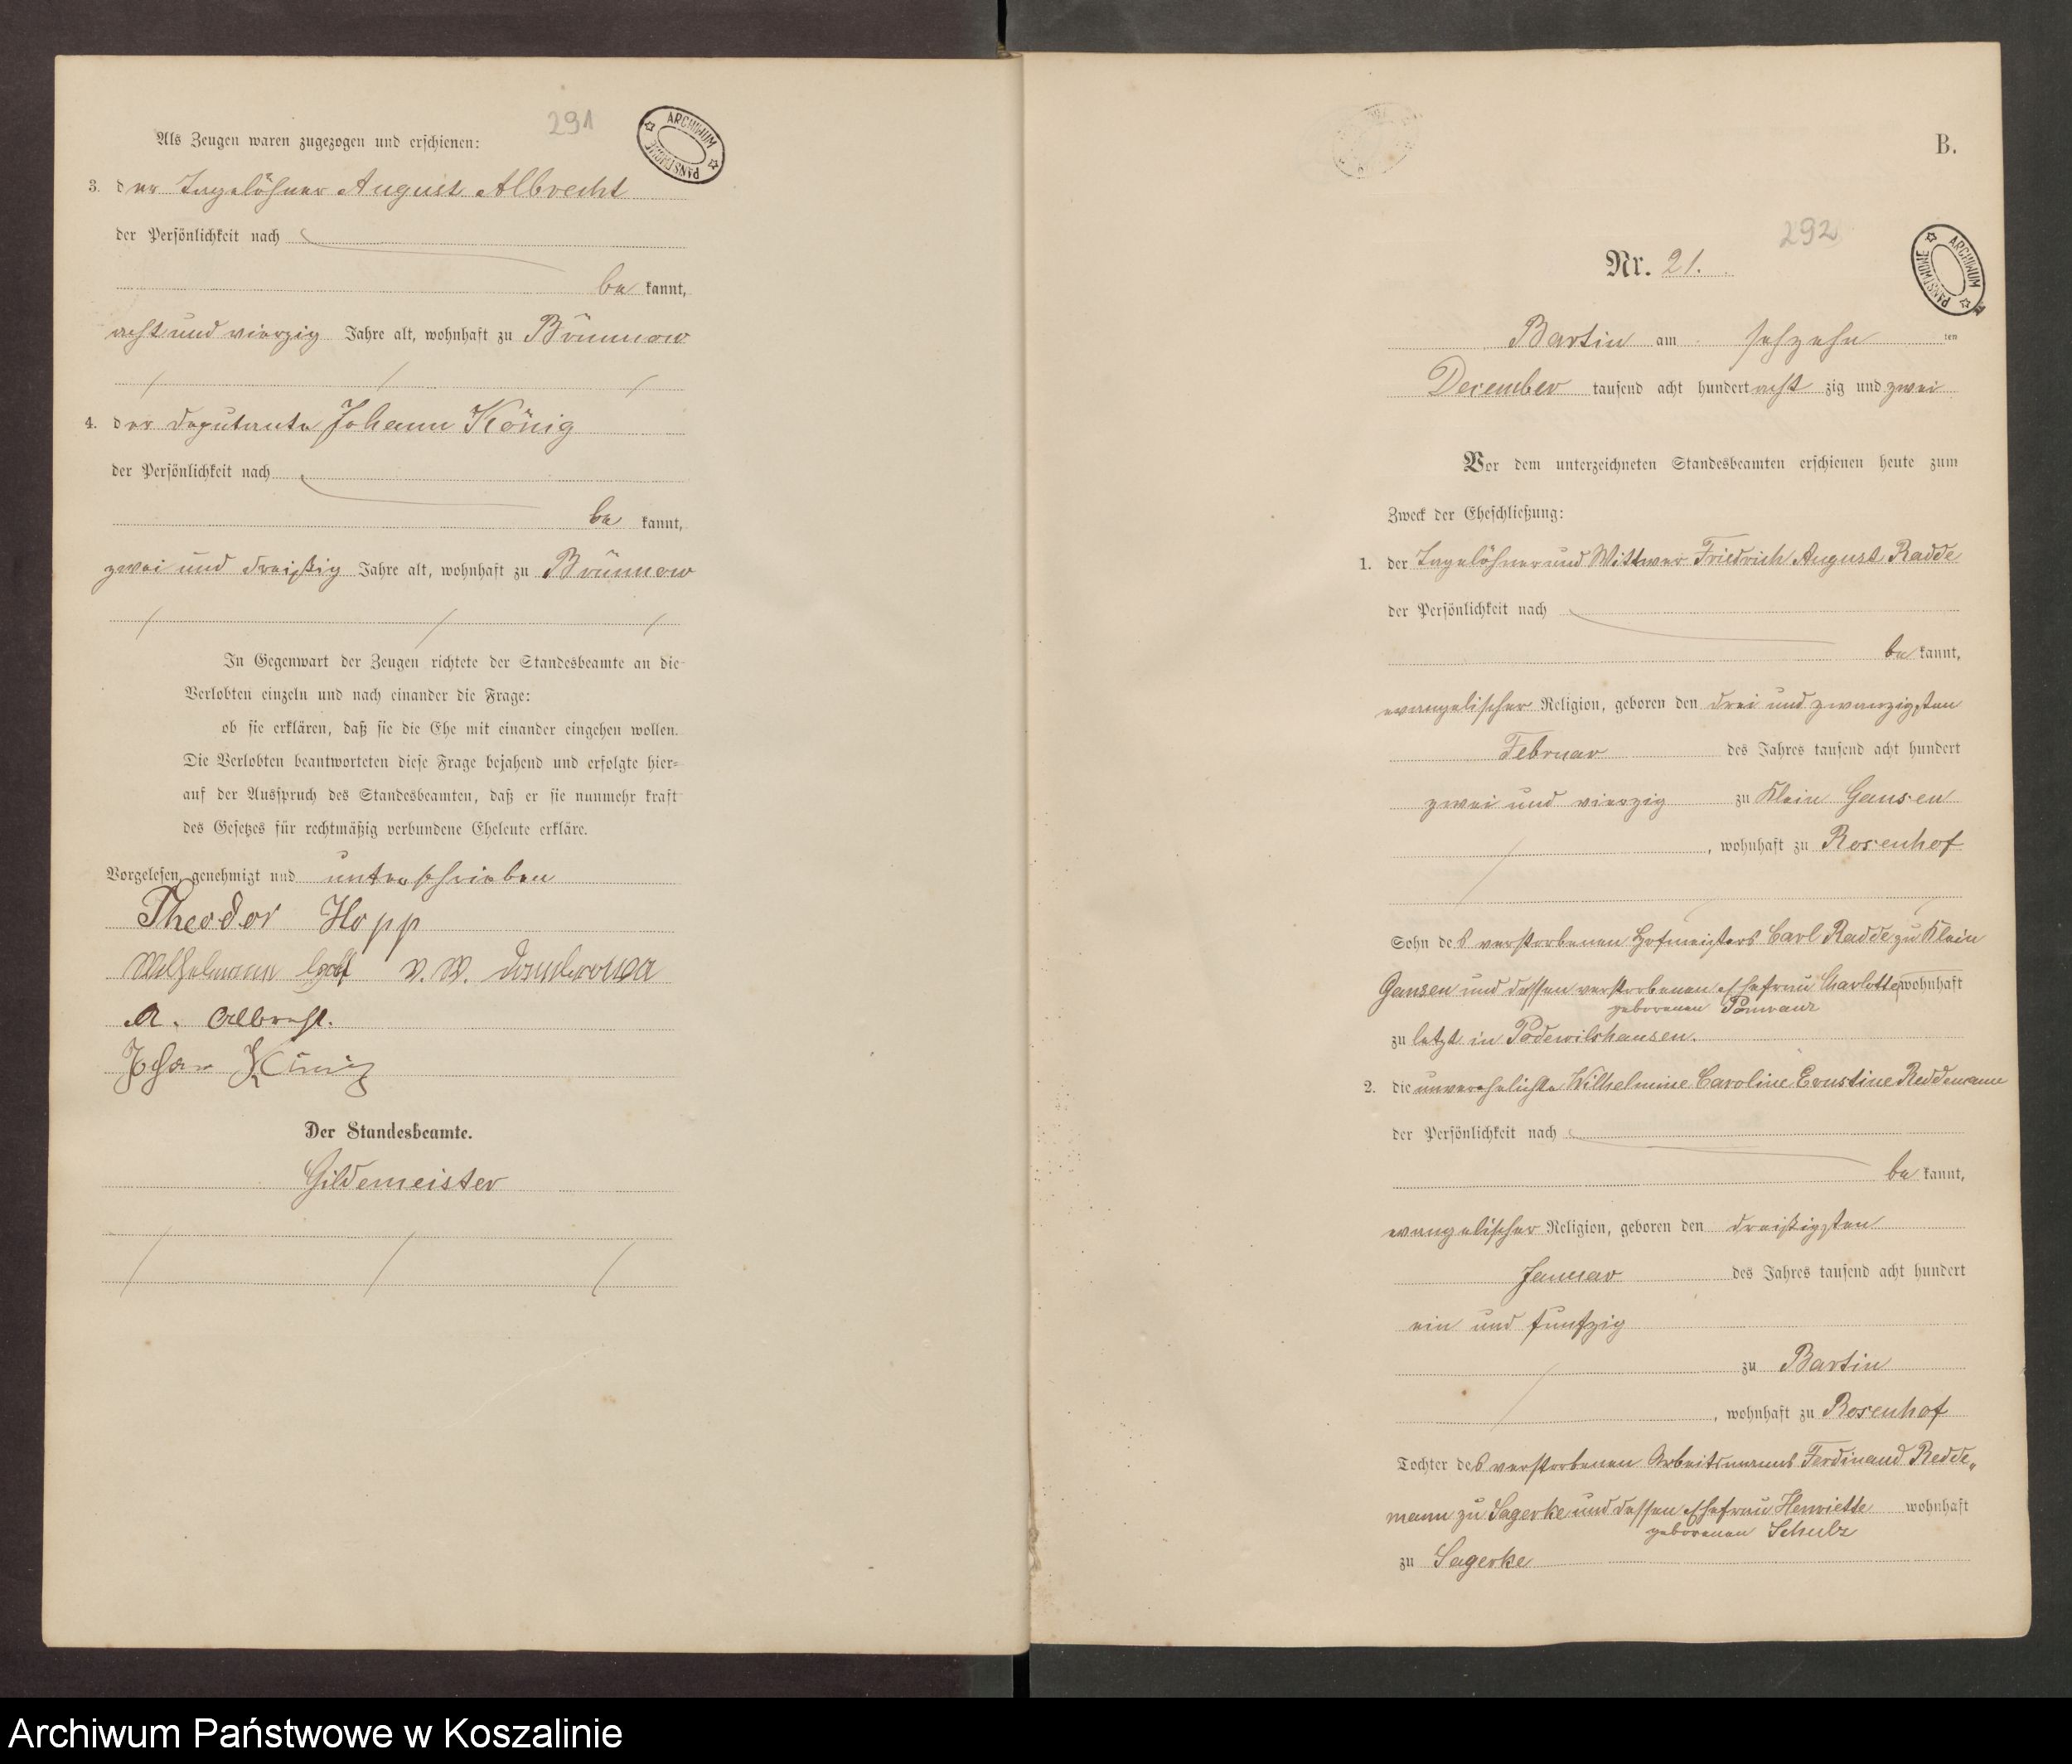 291
ARCHIWUM PAŃSTWOWE
Als Zeugen waren zugezogen und erschienen:
3. der Tagelöhner August Albrecht
der Persönlichkeit nach
be kannt,
acht und vierzig Jahre alt, wohnhaft zu Brünnow
4. der Deputante Johann König
der Persönlichkeit nach
be kannt,
zwei und dreißig Jahre alt, wohnhaft zu Brünnow
In Gegenwart der Zeugen richtete der Standesbeamte an die
Verlobten einzeln und nach einander die Frage:
ob sie erklären, daß sie die Ehe mit einander eingehen wollen.
Die Verlobten beantworteten diese Frage bejahend und erfolgte hier-
auf der Ausspruch des Standesbeamten, daß er sie nunmehr kraft
des Gesetzes für rechtmäßig verbundene Eheleute erkläre.
Vorgelesen, genehmigt und unterschrieben
Theodor Hopp
A. Albrecht.
Johan König
Der Standesbeamte.
Gildemeister
B.
292
ARCHIWUM PAŃSTWOWE
Nr. 21.
Bartin am sechzehn ten
December tausend acht hundert acht zig und zwei
Vor dem unterzeichneten Standesbeamten erschienen heute zum
Zweck der Eheschließung:
1. der Tagelöhner und Wittwer Friedrich August Radde
der Persönlichkeit nach
be kannt,
evangelischer Religion, geboren den drei und zwanzigsten
Februar des Jahres tausend acht hundert
zwei und vierzig zu Klein Gansen
, wohnhaft zu Rosenhof
Sohn des verstorbenen Hofmeisters Carl Radde zu Klein
Gansen und dessen verstorbenen Ehefrau Charlotte, wohnhaft
geborenen Pomranz
zu letzt in Podewilshausen.
2. die unverehelichte Wilhelmine Caroline Ernstine Reddemann
der Persönlichkeit nach
be kannt,
evangelischer Religion, geboren den dreißigsten
Januar des Jahres tausend acht hundert
ein und funfzig
zu Bartin
, wohnhaft zu Rosenhof
Tochter des verstorbenen Arbeitsmanns Ferdinand Redde-
mann zu Sagerke und dessen Ehefrau Henriette wohnhaft
geborenen Schulz
zu Sagerke
Archiwum Państwowe w Koszalinie